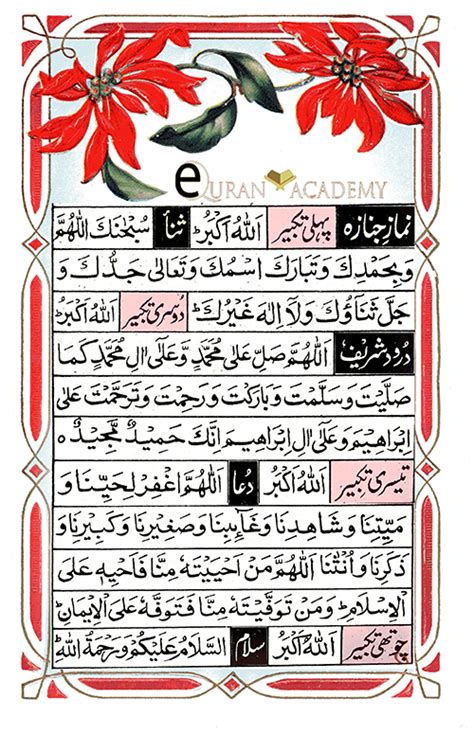 eQURAN ACADEMY
نماز جنازہ پہلی تکبیر اَللّٰهُ اَكْبَرُ ثنأ سُبْحٰنَكَ اللّٰهُمَّ
وَبِحَمْدِكَ وَتَبَارَكَ اسْمُكَ وَتَعَالٰى جَدُّكَ وَ
جَلَّ ثَنَآؤُكَ وَلَآ اِلٰهَ غَيْرُكَ ط دُوسری تکبیر اَللّٰهُ اَكْبَرُ ط
درود شریف اَللّٰهُمَّ صَلِّ عَلٰى مُحَمَّدٍ وَّعَلٰٓى اٰلِ مُحَمَّدٍ كَمَا
صَلَّيْتَ وَسَلَّمْتَ وَبَارَكْتَ وَرَحِمْتَ وَتَرَحَّمْتَ عَلٰٓى
اِبْرَاهِيْمَ وَعَلٰٓى اٰلِ اِبْرَاهِيْمَ اِنَّكَ حَمِيْدٌ مَّجِيْدٌ ہ
تیسری تکبیر اَللّٰهُ اَكْبَرُ دُعا اَللّٰهُمَّ اغْفِرْ لِحَيِّنَا وَ
مَيِّتِنَا وَشَاهِدِنَا وَغَآئِبِنَا وَصَغِيْرِنَا وَكَبِيْرِنَا وَ
ذَكَرِنَا وَاُنْثٰنَا اَللّٰهُمَّ مَنْ اَحْيَيْتَهٗ مِنَّا فَاَحْيِهٖ عَلَى
الْاِسْلَامِ ط وَمَنْ تَوَفَّيْتَهٗ مِنَّا فَتَوَفَّهٗ عَلَى الْاِيْمَانِ ط
چوتھی تکبیر اَللّٰهُ اَكْبَرُ سلام اَلسَّلَامُ عَلَيْكُمْ وَرَحْمَةُ اللّٰهِ ط